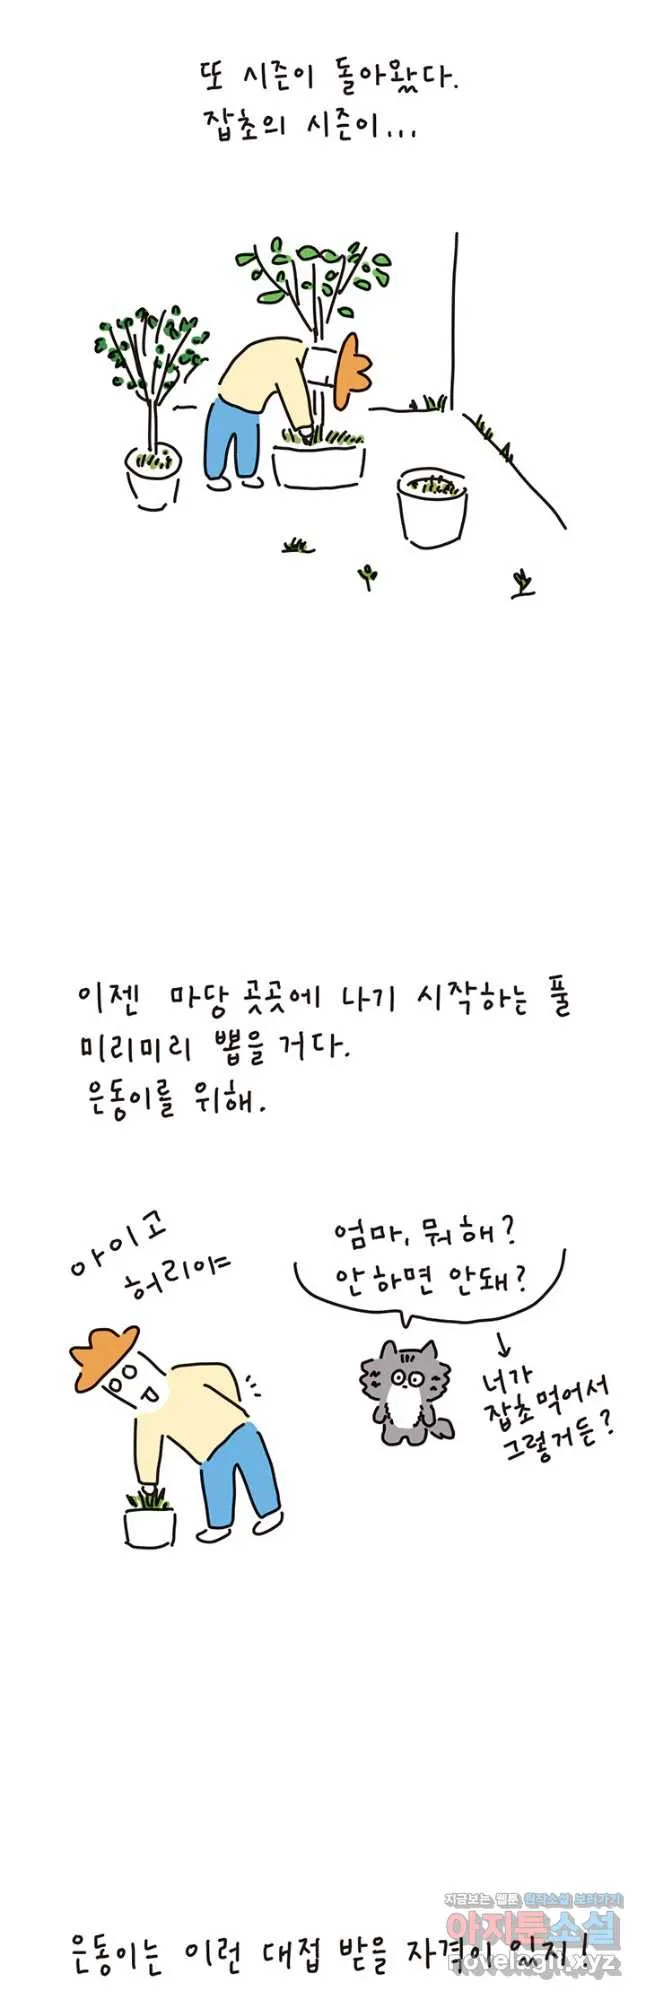 또 시즌이 돌아왔다.
잡초의 시즌이...
이젠 마당 곳곳에 나기 시작하는 풀
미리미리 뽑을 거다.
은동이를 위해.
아이고
허리야
엄마, 뭐해?
안 하면 안돼?
너가
잡초 먹어서
그렇거든?
지금보는 웹툰 원작소설 보러가기
아지툰소설
novelagit.xyz
은동이는 이런 대접 받을 자격이 있지!